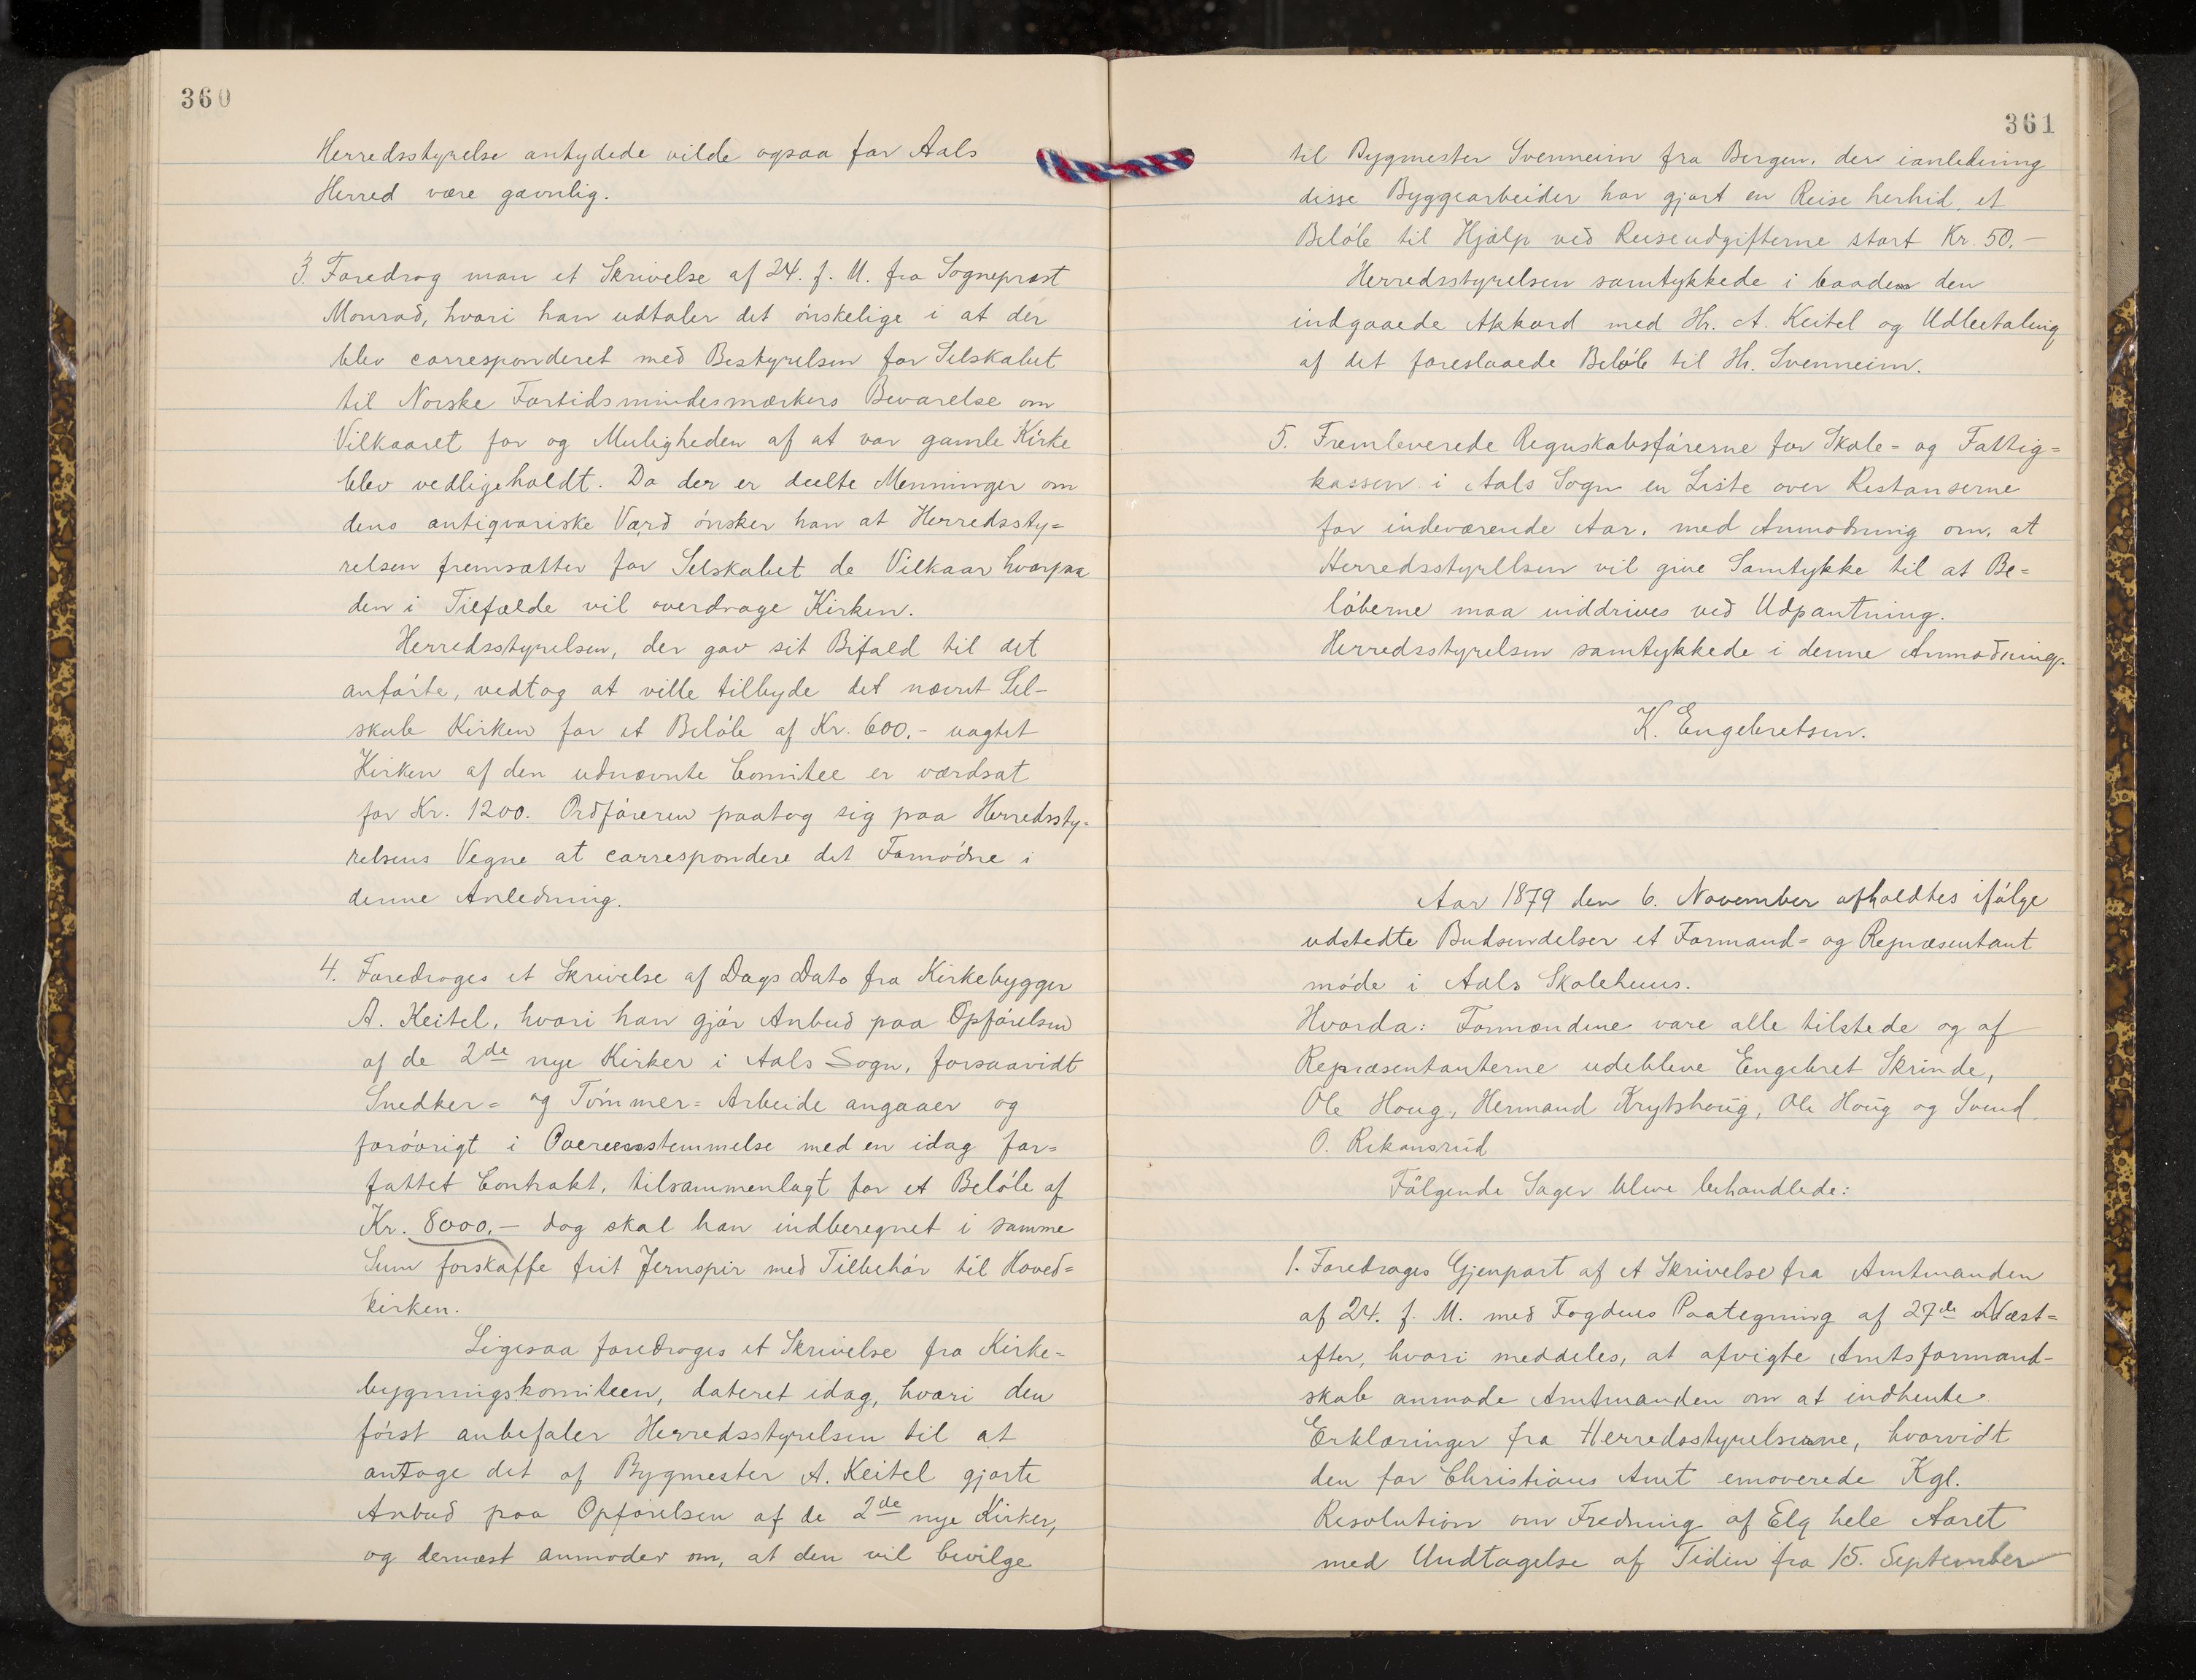 360
Herredsstyrelse antydede vilde ogsaa for Aals
Herred være gavnlig.
3. Foredrog man et Skrivelse af 24. f. M. fra Sogneprest
Monrad, hvori han udtaler det ønskelige i at der
blev corresponderet med Bestyrelsen for Selskabet
til Norske Fortidsmindesmærkers Bevarelse om
Vilkaaret for og Muligheden af at vor gamle Kirke
blev vedligeholdt. Da der er deelte Menninger om
dens antiqvariske Værd ønsker han at Herredssty=
relsen fremsætter for Selskabet de Vilkaar hvorpaa
den i Tilfælde vil overdrage Kirken.
Herredsstyrelsen, der gav sit Bifald til det
anførte, vedtog at ville tilbyde det nævnt Sel-
skab Kirken for et Beløb af Kr. 600.- uagtet
Kirken af den udnævnte Comitee er værdsat
for Kr. 1200. Ordføreren paatog sig paa Herredssty=
relsens Vegne at correspondere det Fornødne i
denne Anledning.
4. Foredroges et Skrivelse af Dags Dato fra Kirkebygger
A. Keitel, hvori han gjør Anbud paa Opførelsen
af de 2de nye Kirker i Aals Sogn, forsaavidt
Snedker= og Tømmer= Arbeide angaaer og
forøvrigt i Overensstemmelse med en idag for=
fattet Contrakt, tilsammenlagt for et Beløb af
Kr. 8000.- dog skal han indberegnet i samme
Sum forskaffe frit Jernspir med Tilbehør til Hoved=
kirken.
Ligesaa foredroges et Skrivelse fra Kirke-
bygningskomiteen, dateret idag, hvori den
først anbefaler Herredsstyrelsen til at
antage det af Bygmester A. Keitel gjorte
Anbud paa Opførelsen af de 2de nye Kirker,
og dernæst anmoder om, at den vil bevilge
361
til Bygmester Svenneim fra Bergen, der ianledning
disse Byggearbeider har gjort en Reise herhid, et
Beløb til Hjælp ved Reiseudgifterne stort Kr. 50.-
Herredsstyrelsen samtykkede i baade den
indgaaede Akkord med Hr. A. Keitel og Udbetaling
af det foreslaaede Beløb til Hr. Svenneim.
5. Fremleverede Regnskabsførerne for Skole= og Fattig=
kassen i Aals Sogn en Liste over Restanserne
for indeværende Aar, med Anmodning om, at
Herredsstyrellsen vil give Samtykke til at Be=
løberne maa inddrives ved Udpantning.
Herredsstyrelsen samtykkede i denne Anmodning.
K. Engebretsen.
Aar 1879 den 6. November afholdtes ifølge
udstedte Budsendelser et Formand= og Repræsentant
møde i Aals Skolehuus.
Hvorda: Formændene vare alle tilstede og af
Repræsentanterne udebleve Engebret Skrinde,
Ole Houg, Hermand Krytshoug, Ole Houg og Svend
O. Rikansrud
Følgende Sager bleve behandlede:
1. Foredroges Gjenpart af et Skrivelse fra Amtmanden
af 24. f. M. med Fogdens Paategning af 27de Næst=
efter, hvori meddeles, at afvigte Amtsformand-
skab anmode Amtmanden om at indhente
Erklæringer fra Herredsstyrelserne, hvorvidt
den for Christians Amt emoverede Kgl.
Resolution om Fredning af Elg hele Aaret
med Undtagelse af Tiden fra 15. September